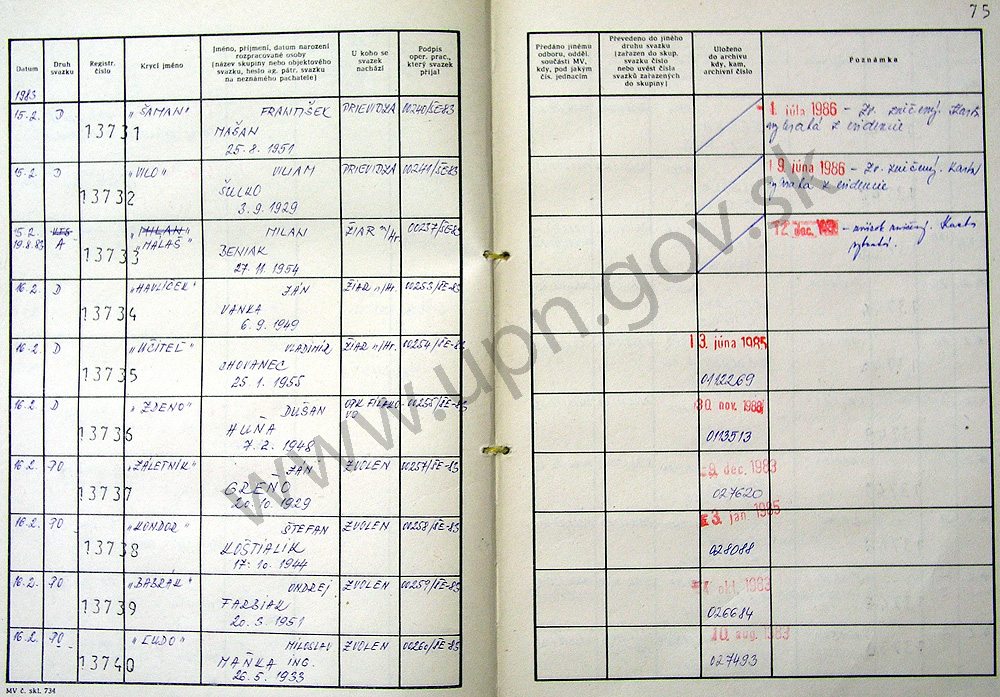 75
Datum
Druh
svazku
Registr.
číslo
Krycí jméno
Jméno, příjmení, datum narození
rozpracované osoby
[název skupiny nebo objektového
svazku, heslo ag. pátr. svazku
na neznámého pachatele]
U koho se
svazek
nachází
Podpis
oper. prac.,
který svazek
přijal
Předáno jinému
odboru, odděl.
součásti MV,
kdy, pod jakým
čís. jednacím
Převedeno do jiného
druhu svazku
[zařazen do skup.
svazku číslo
nebo uvést čísla
svazků zařazených
do skupiny]
Uloženo
do archivu
kdy, kam,
archivní číslo
Poznámka
1983
15.2. D "ŠAMAN" FRANTIŠEK PRIEVIDZA 00240/ŠE-83
13731 MAŠAN
25.8.1951
1. júla 1986 - Zv. zničený. Karta
vybratá z evidencie
15.2. D "VILO" VILIAM PRIEVIDZA 00241/ŠE-83
13732 ŠULKO
3.9.1929
9. júna 1986 - Zv. zničený. Karta
vybratá z evidencie
15.2. "MILAN" MILAN ŽIAR n/Hr. 00237/ŠE-83
19.8.83 A "MALAŠ"
13733 BENIAK
27.11.1954
12. dec. - zničený. Karta
vybratá.
16.2. D "HAVLÍČEK" JÁN ŽIAR n/Hr. 00253/ŠE-83
13734 VANKA
6.9.1949
16.2. D "UČITEĽ" VLADIMÍR ŽIAR n/Hr. 00254/ŠE-83
13735 CHOVANEC
25.1.1955
13. júna 1985
0112269
16.2. D "ZDENO" DUŠAN OPK FIĽAKO-VO 00255/ŠE-83
13736 HUŇA
7.2.1948
30. nov. 1988
0113513
16.2. PO "ZÁLETNÍK" JÁN ZVOLEN 00257/ŠE-83
13737 GREŇO
20.10.1929
9. dec. 1983
027620
16.2. PO "KONDOR" ŠTEFAN ZVOLEN 00258/ŠE-83
13738 KOŠTIALIK
17.10.1944
3. jan. 1985
028088
16.2. PO "BABRÁK" ONDREJ ZVOLEN 00259/ŠE-83
13739 FARBIAK
20.3.1951
okt. 1983
026684
16.2. PO "ĽUDO" MILOSLAV ZVOLEN 00260/ŠE-83
13740 MAŇKA ING.
26.5.1933
10. aug. 1983
027493
MV č. skl. 734
www.upn.gov.sk